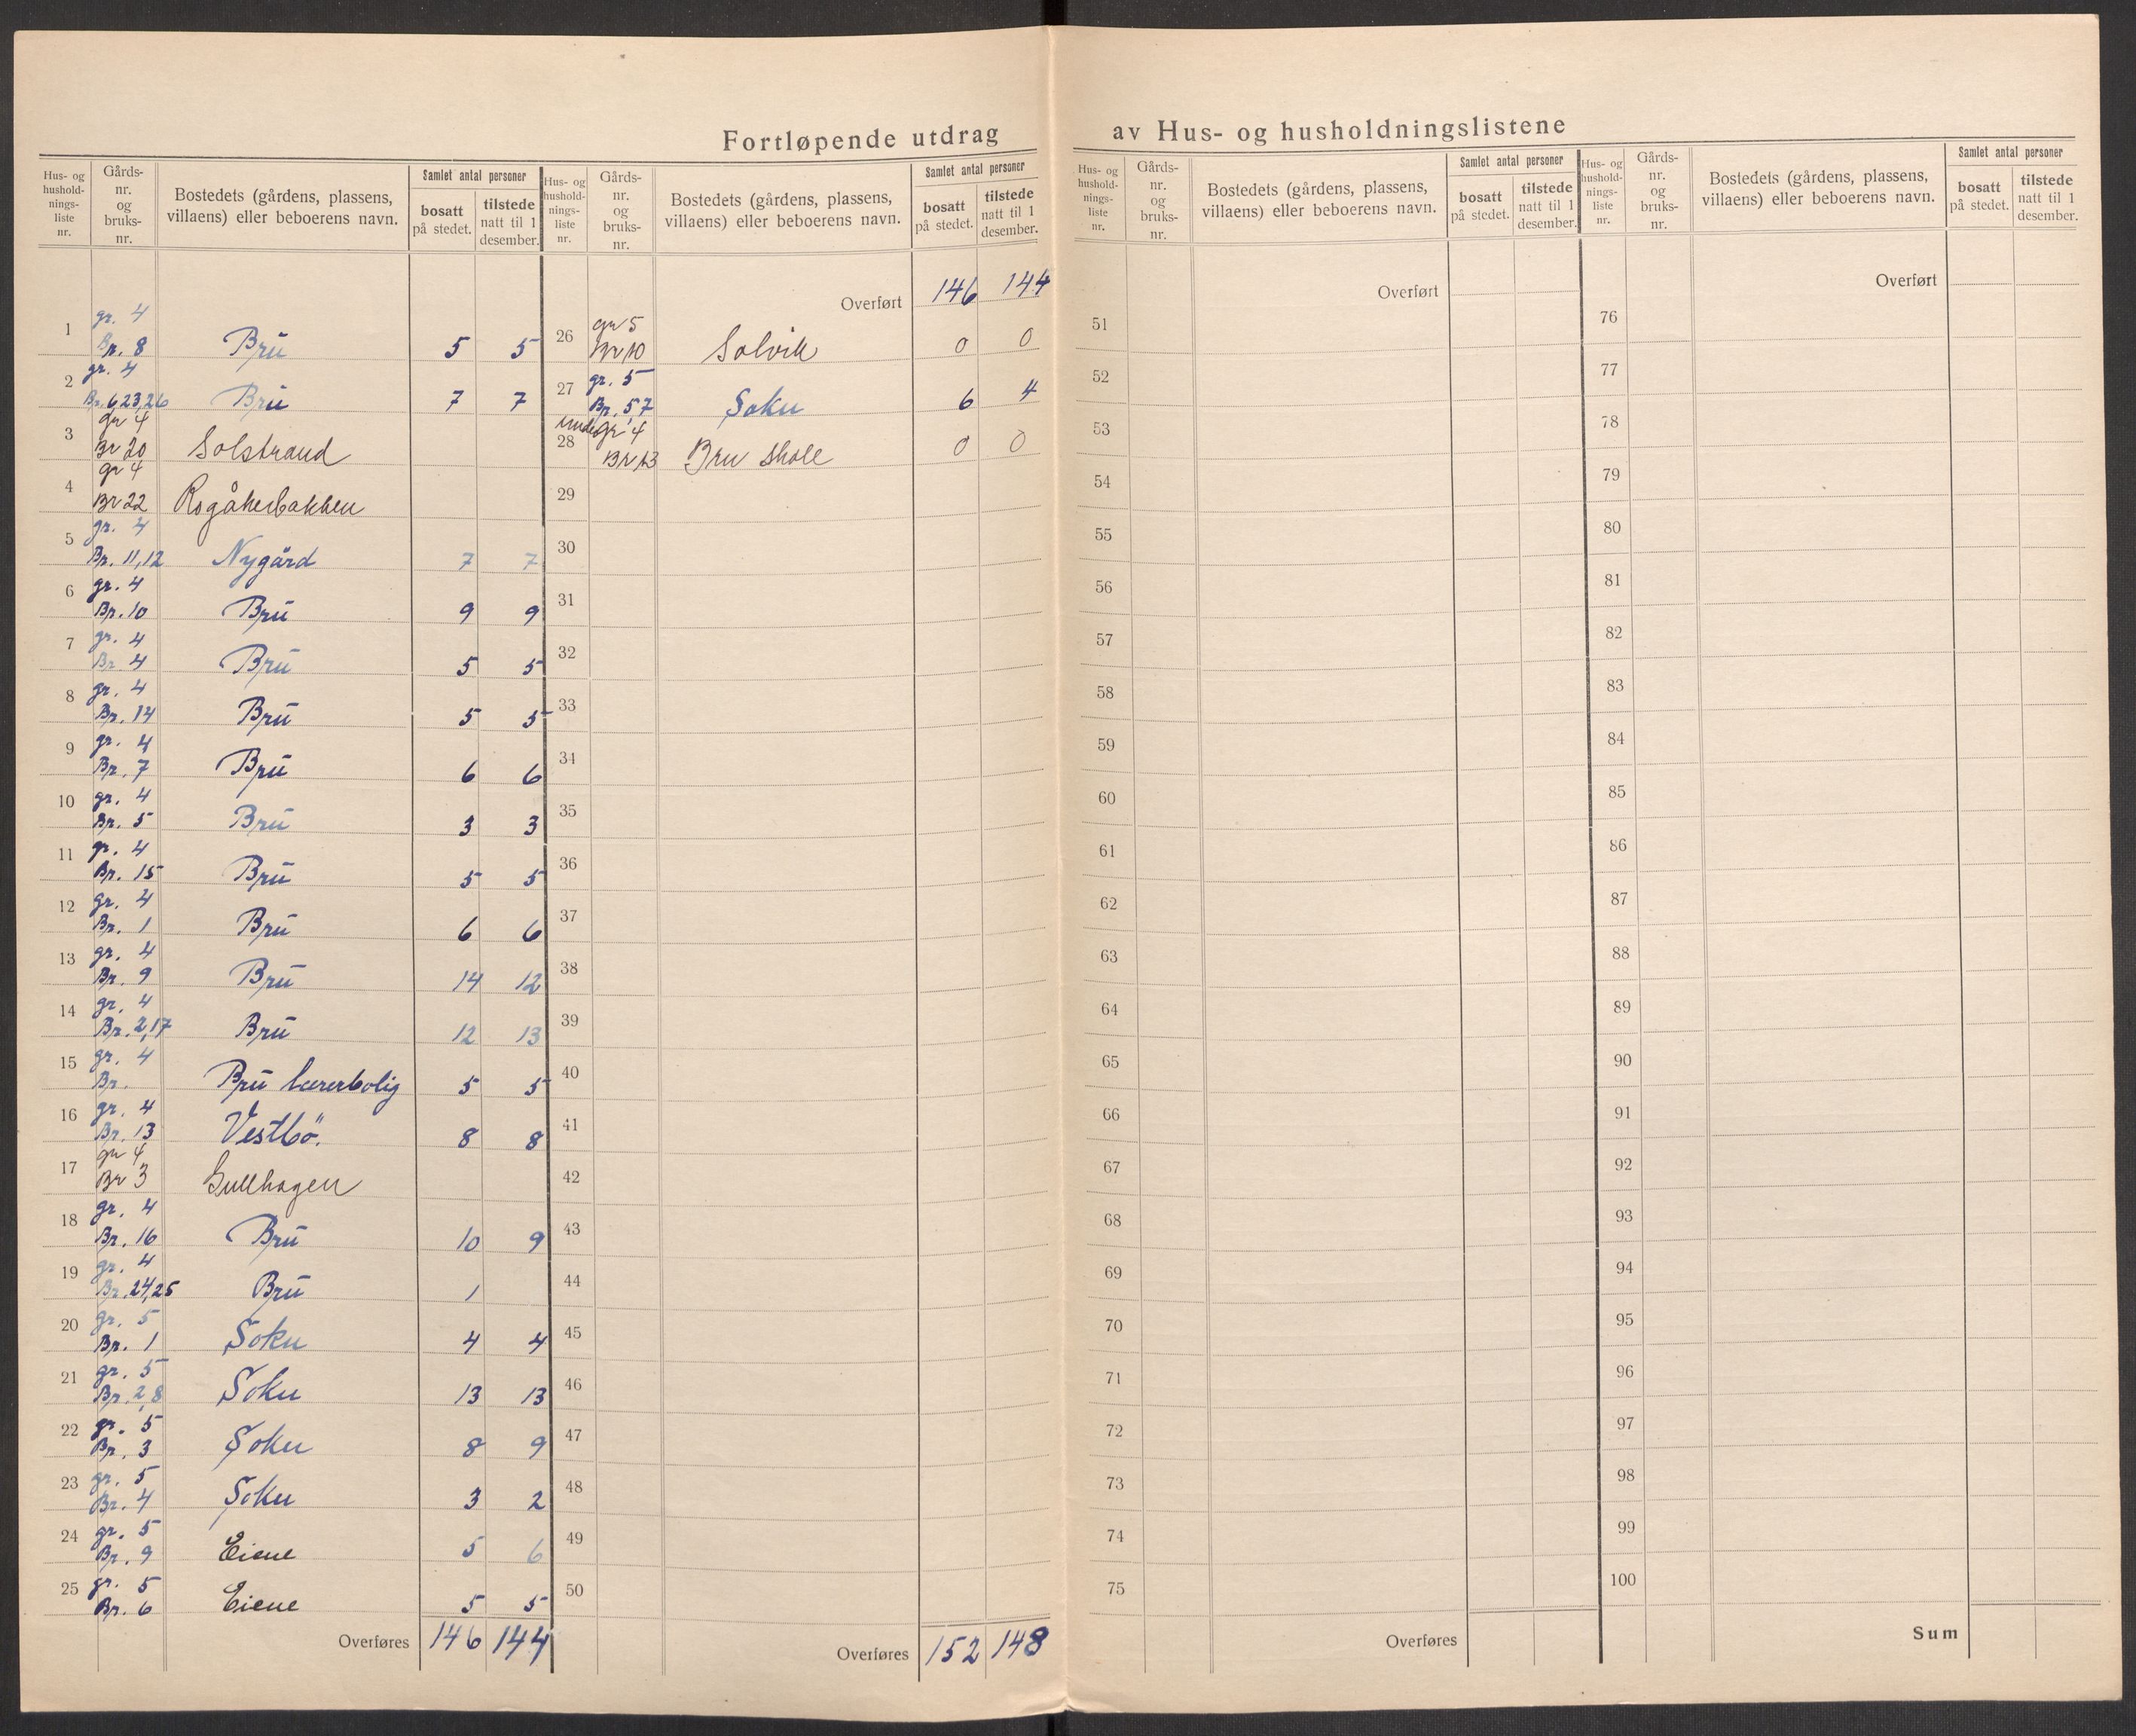 Fortløpende utdrag av Hus- og husholdningslistene
Hus- og hushold- nings- liste nr. | Gårds- nr. og bruks- nr. | Bostedets (gårdens, plassens, villaens) eller beboerens navn. | Samlet antal personer | bosatt på stedet. | tilstede natt til 1 desember.
Hus- og hushold- nings- liste nr. | Gårds- nr. og bruks- nr. | Bostedets (gårdens, plassens, villaens) eller beboerens navn. | Samlet antal personer | bosatt på stedet. | tilstede natt til 1 desember.
1 gr. 4 Br. 8 Bru 5 5
2 gr. 4 Br. 6,23,26 Bru 7 7
3 gr 4 Br 20 Solstrand
4 gr 4 Br 22 Rogåkerbakken
5 gr. 4 Br. 11,12 Nygård 7 7
6 gr. 4 Br. 10 Bru 9 9
7 gr. 4 Br 4 Bru 5 5
8 gr. 4 Br. 14 Bru 5 5
9 gr. 4 Br. 7 Bru 6 6
10 gr. 4 Br. 5 Bru 3 3
11 gr. 4 Br. 15 Bru 5 5
12 gr. 4 Br. 1 Bru 6 6
13 gr. 4 Br. 9 Bru 14 12
14 gr. 4 Br. 2,17 Bru 12 13
15 gr. 4 Br. Bru lærerbolig 5 5
16 gr. 4 Br. 13 Vestbö. 8 8
17 gr 4 Br 3 Gullhagen
18 gr. 4 Br. 16 Bru 10 9
19 gr. 4 Br. 24,25 Bru 1
20 gr. 5 Br. 1 Soku 4 4
21 gr. 5 Br. 2,8 Soku 13 13
22 gr. 5 Br. 3 Soku 8 9
23 gr. 5 Br. 4 Soku 3 2
24 gr. 5 Br. 9 Eiene 5 6
25 gr. 5 Br. 6 Eiene 5 5
Overføres 146 144
Overført 146 144
26 gr 5 Br 10 Solvik 0 0
27 gr. 5 Br. 5,7 Soku 6 4
28 under gr 4 Br 13 Bru skole 0 0
29
30
31
32
33
34
35
36
37
38
39
40
41
42
43
44
45
46
47
48
49
50
Overføres 152 148
Hus- og hushold- nings- liste nr. | Gårds- nr. og bruks- nr. | Bostedets (gårdens, plassens, villaens) eller beboerens navn. | Samlet antal personer | bosatt på stedet. | tilstede natt til 1 desember.
Overført
51
52
53
54
55
56
57
58
59
60
61
62
63
64
65
66
67
68
69
70
71
72
73
74
75
Overføres
Hus- og hushold- nings- liste nr. | Gårds- nr. og bruks- nr. | Bostedets (gårdens, plassens, villaens) eller beboerens navn. | Samlet antal personer | bosatt på stedet. | tilstede natt til 1 desember.
Overført
76
77
78
79
80
81
82
83
84
85
86
87
88
89
90
91
92
93
94
95
96
97
98
99
100
Sum